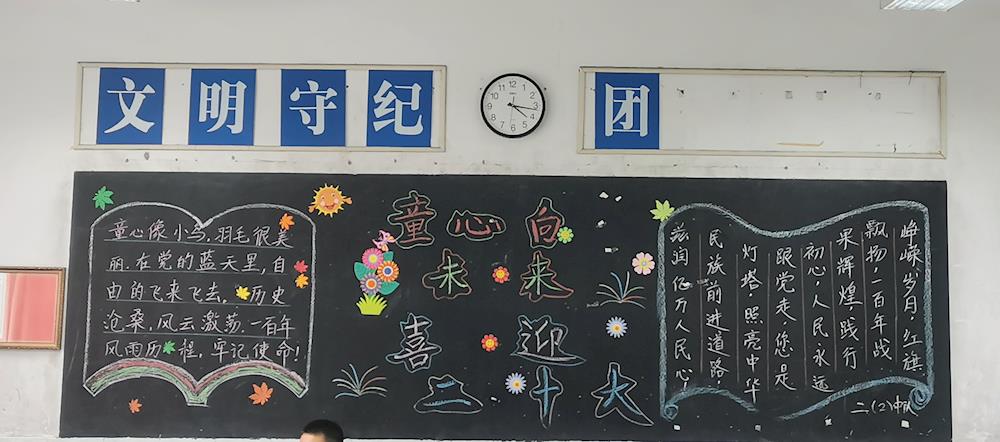 文明守纪
团
12 1 2 3 4 5 6 7 8 9 10 11
童心像小鸟,羽毛很美
丽.在党的蓝天里,自
由的飞来飞去,历史
沧桑,风云激荡.一百年
风雨历程,牢记使命!
童心向
未来
喜迎
二十大
峥嵘岁月,红旗
飘扬,一百年战
果辉煌,践行
初心,人民永远
跟党走,您是
灯塔,照亮中华
民族前进道路,
滋润亿万人民心!
二(2)中队